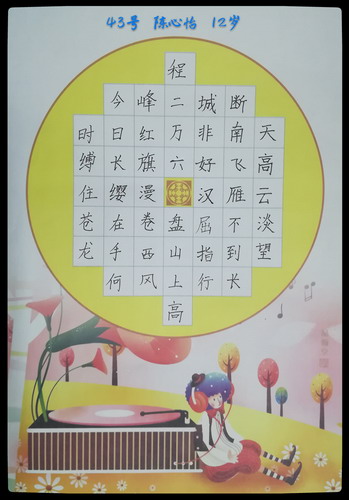 43号 陈心怡 12岁
天高云淡望
断南飞雁不到长
城非好汉屈指行
程二万六盘山上高
峰红旗漫卷西风
今日长缨在手何
时缚住苍龙